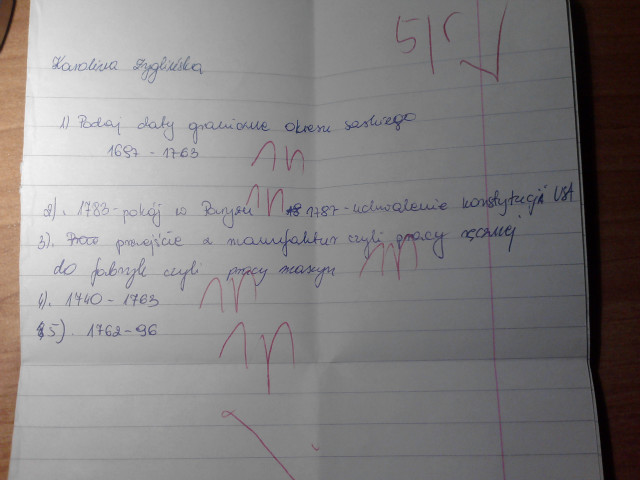 5/5
Karolina Zyglińska
1) Podaj daty graniczne okresu saskiego
1697 - 1763
2). 1783 - pokój w Paryżu 1787 - uchwalenie konstytucji USA
3). przejście z manufaktur czyli pracy ręcznej
do fabryk czyli pracy maszyn
4). 1740 - 1763
5). 1762 - 96